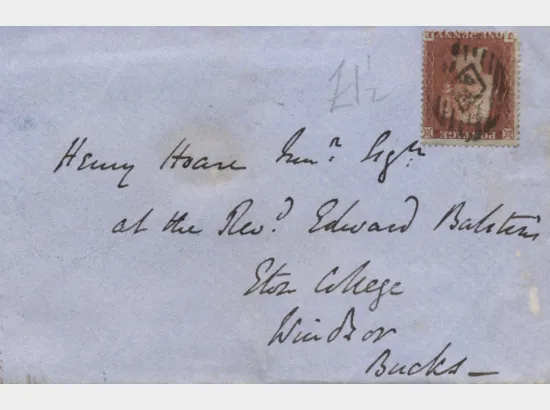 ONE PENNY
POSTAGE
£1½
Henry Hoare Junr. Esqre.
at the Revd. Edward Balston's
Eton College
Windsor
Bucks —